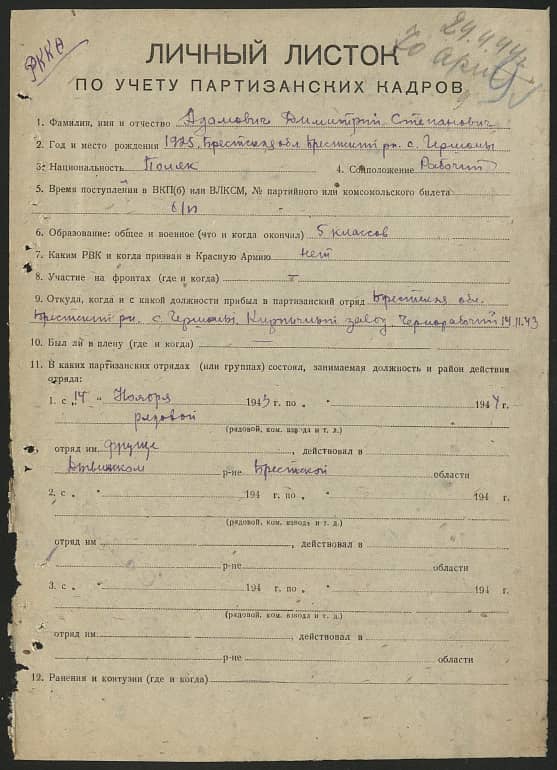 РККА
ЛИЧНЫЙ ЛИСТОК
ПО УЧЕТУ ПАРТИЗАНСКИХ КАДРОВ
1. Фамилия, имя и отчество Адамович Димитрий Степанович
2. Год и место рождения 1925, Брестская обл. Брестский рн. с. Гершоны
3. Национальность Поляк 4. Соцположение Рабочий
5. Время поступления в ВКП(б) или ВЛКСМ, № партийного или комсомольского билета
б/п
6. Образование: общее и военное (что и когда окончил) 5 классов
7. Каким РВК и когда призван в Красную Армию нет
8. Участие на фронтах (где и когда) —
9. Откуда, когда и с какой должности прибыл в партизанский отряд Брестская обл.
Брестский рн. с. Гершоны, Кирпичный завод, Чернорабочий 14.11.43
10. Был ли в плену (где и когда) —
11. В каких партизанских отрядах (или группах) состоял, занимаемая должность и район действия
отряда:
1. с „14 „ Ноября 1943 г. по „ 1944 г.
рядовой
(рядовой, ком. взвода и т. д.)
отряд им. Фрунзе, действовал в
р-не Брестской области
2. с „ „ 194 г. по „ 194 г.
(рядовой, ком. взвода и т. д.)
отряд им, действовал в
р-не области
3. с „ „ 194 г. по „ 194 г.
(рядовой, ком. взвода и т. д.)
отряд им, действовал в
р-не области
12. Ранения и контузии (где и когда)